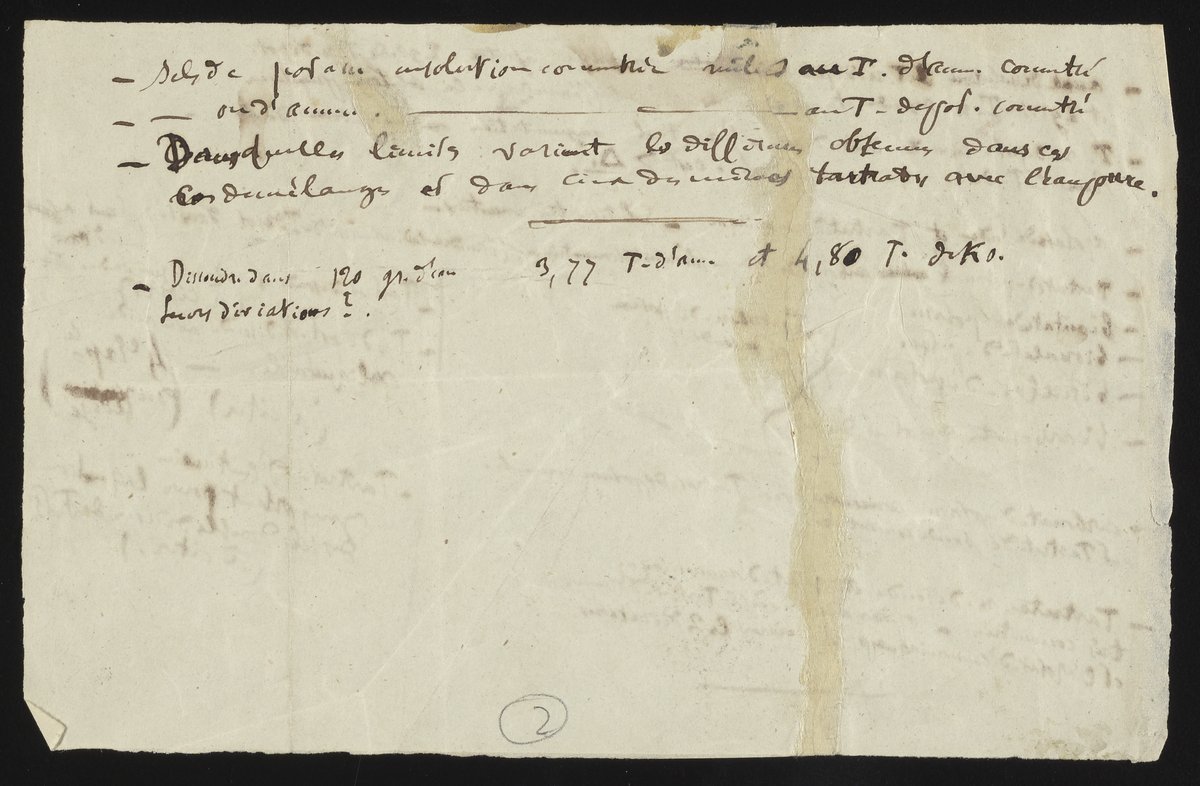 - Sels de potasse, en solution concentrée mêlés au T. d'amm. concentré
- — ou d'ammon. — — au T. de pot. concentré
- Dans quelles limites varient les différences obtenues dans ces
mélanges et dans ceux des mêmes tartrates avec l'eau pure.
- Dissoudre dans 120 gr. d'eau 3,77 T. d'am. et 4,80 T. de Ko.
Leurs déviations ?.
2